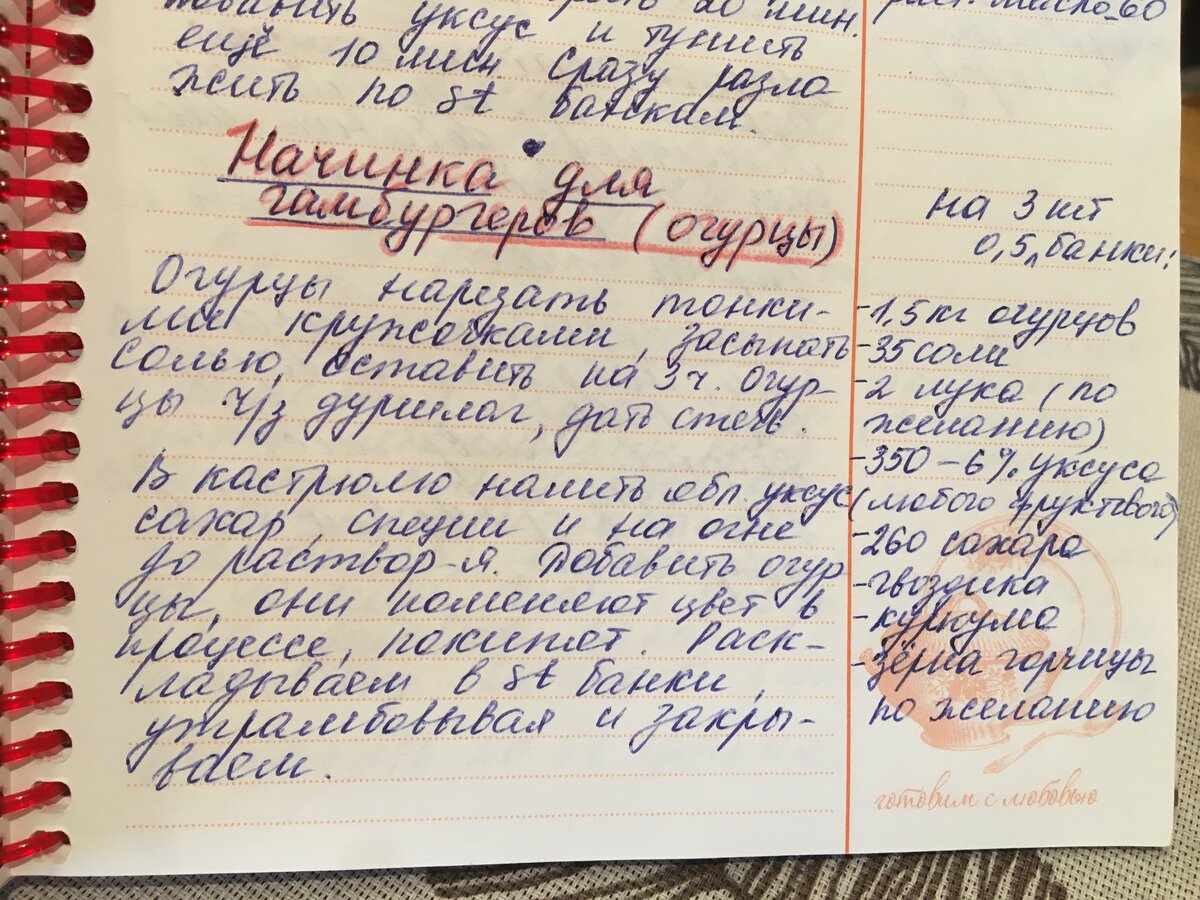 добавить уксус и тушить 20 мин.
ещё 10 мин. сразу разло
жить по st банкам.
Начинка для
гамбургеров (огурцы)
Огурцы нарезать тонки-
ми кружочками, засыпать
солью, оставить на 3 ч. Огур-
цы ч/з друшлаг, дать стечь.
В кастрюлю налить ябл. уксус
сахар, специи и на огне
до раствор-я. Добавить огур
цы, они поменяют цвет в
процессе, покипят. Раск-
ладываем в st банки,
утрамбовывая и закры-
ваем.
раст. масло-60
на 3 шт
0,5 л банки:
-1,5 кг огурцов
-35 соли
-2 лука (по
желанию)
-350-6% уксуса
(любого фруктвого)
-260 сахара
-гвоздика
-куркума
-зёрна горчицы
по желанию
готовим с любовью